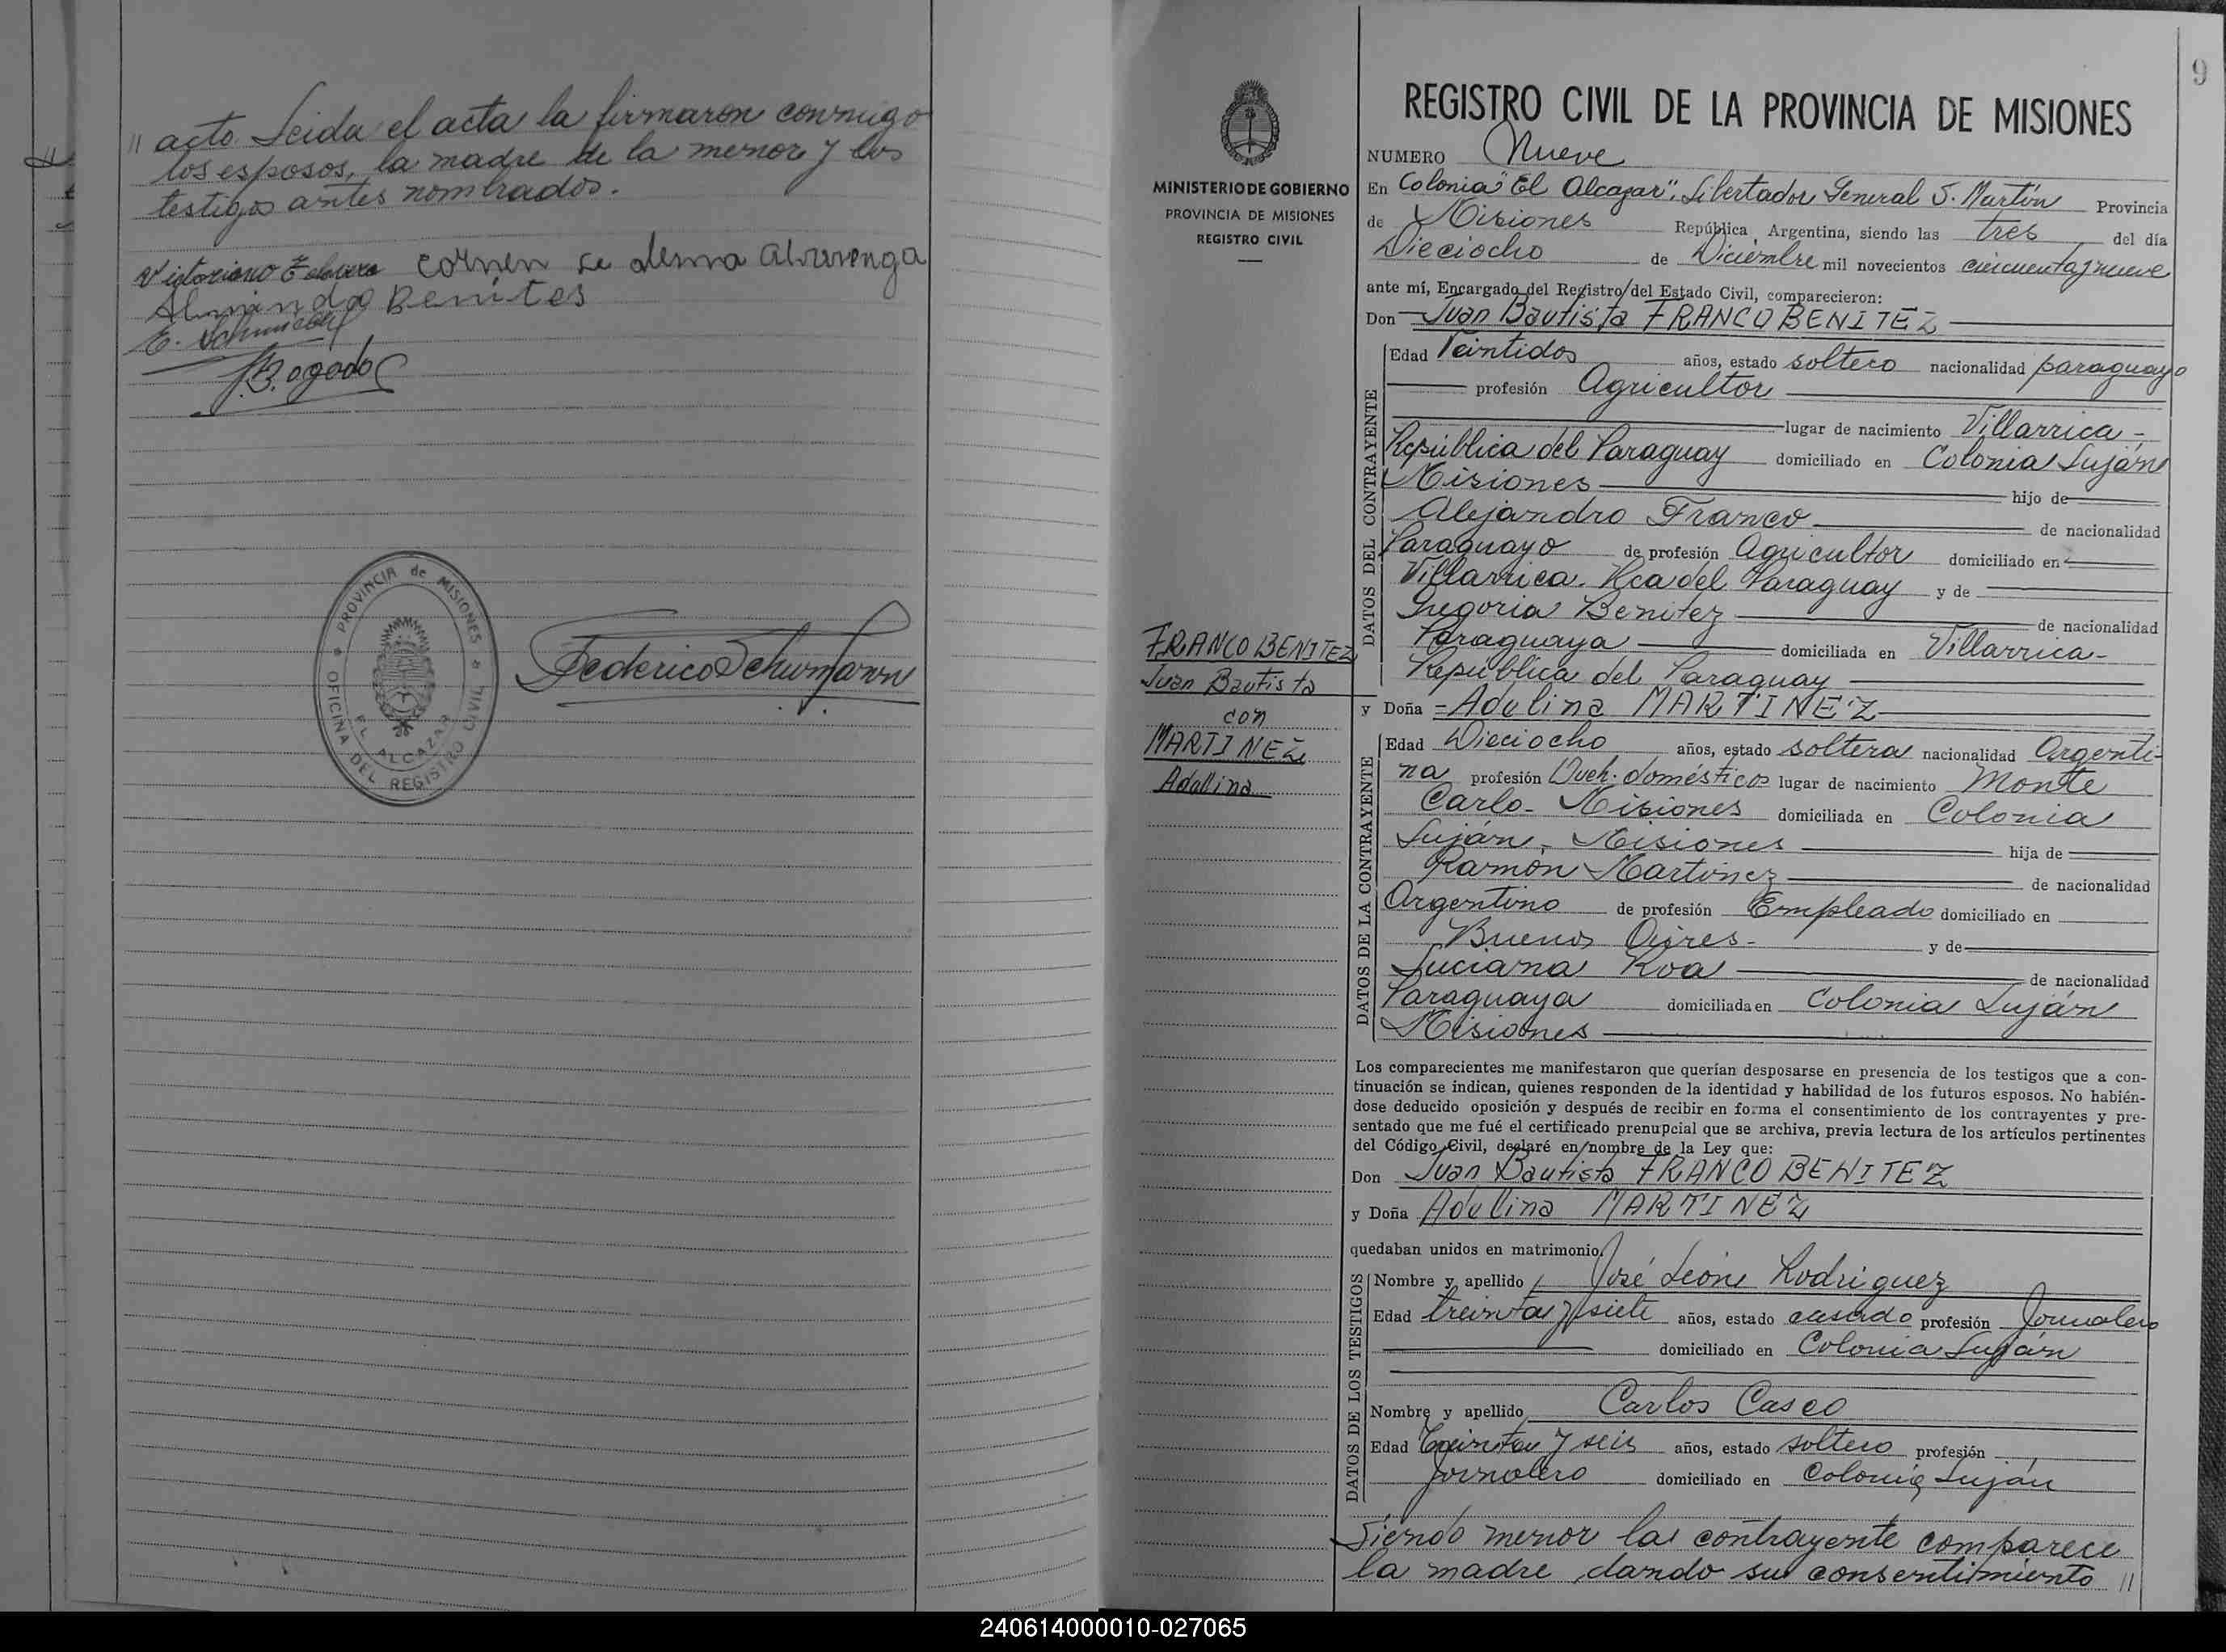 // acto. Leida el acta la firmaron conmigo
los esposos, la madre de la menor y los
testigos antes nombrados.
Victoriano
Benites
PROVINCIA de MISIONES
OFICINA DEL REGISTRO CIVIL
EL ALCAZAR
Federico Schumann
9
MINISTERIO DE GOBIERNO
PROVINCIA DE MISIONES
REGISTRO CIVIL
FRANCO BENITEZ
Juan Bautista
con
MARTINEZ
Adelina
REGISTRO CIVIL DE LA PROVINCIA DE MISIONES
NUMERO Nueve
En Colonia "El Alcazar", Libertador General S. Martín Provincia
de Misiones República Argentina, siendo las tres del día
Dieciocho de Diciembre mil novecientos cincuenta y nueve
ante mí, Encargado del Registro del Estado Civil, comparecieron:
Don Juan Bautista FRANCO BENITEZ
DATOS DEL CONTRAYENTE
Edad Veintidos años, estado soltero nacionalidad paraguayo
profesión Agricultor
lugar de nacimiento Villarrica -
República del Paraguay domiciliado en Colonia Luján
Misiones hijo de
Alejandro Franco de nacionalidad
Paraguayo de profesión Agricultor domiciliado en
Villarrica. Rca del Paraguay y de
Gregoria Benitez de nacionalidad
Paraguaya domiciliada en Villarrica -
República del Paraguay
y Doña Adelina MARTINEZ
DATOS DE LA CONTRAYENTE
Edad Dieciocho años, estado soltera nacionalidad Argenti-
na profesión Queh. domésticos lugar de nacimiento Monte
Carlo - Misiones domiciliada en Colonia
Luján - Misiones hija de
Ramón Martinez de nacionalidad
Argentino de profesión Empleado domiciliado en
Buenos Aires - y de
Luciana Roa de nacionalidad
Paraguaya domiciliada en Colonia Luján
Misiones
Los comparecientes me manifestaron que querían desposarse en presencia de los testigos que a con-
tinuación se indican, quienes responden de la identidad y habilidad de los futuros esposos. No habién-
dose deducido oposición y después de recibir en forma el consentimiento de los contrayentes y pre-
sentado que me fué el certificado prenupcial que se archiva, previa lectura de los artículos pertinentes
del Código Civil, declaré en nombre de la Ley que:
Don Juan Bautista FRANCO BENITEZ
y Doña Adelina MARTINEZ
quedaban unidos en matrimonio.
DATOS DE LOS TESTIGOS
Nombre y apellido José León Rodriguez
Edad treinta y siete años, estado casado profesión Jornalero
domiciliado en Colonia Luján
Nombre y apellido Carlos Casco
Edad treinta y seis años, estado soltero profesión
Jornalero domiciliado en Colonia Luján
Siendo menor la contrayente comparece
la madre, dando su consentimiento //
240614000010-027065